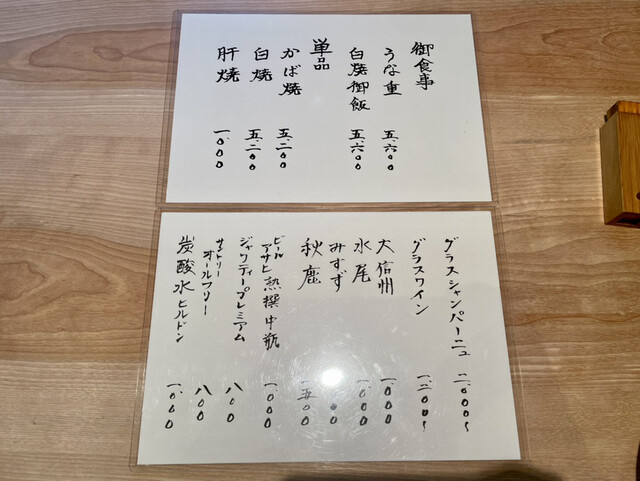 御食事
うな重 五、六〇〇
白焼御飯 五、六〇〇
単品
かば焼 五、二〇〇
白焼 五、二〇〇
肝焼 一、〇〇〇
グラスシャンパーニュ 二、〇〇〇〜
グラスワイン 一、二〇〇〜
大信州 一、〇〇〇
水尾 一、〇〇〇
みすず
秋鹿 一、五〇〇
ビール
アサヒ熟撰中瓶 一、〇〇〇
ジャワティープレミアム 八〇〇
サントリー
オールフリー 八〇〇
炭酸水ヒルドン 一、〇〇〇